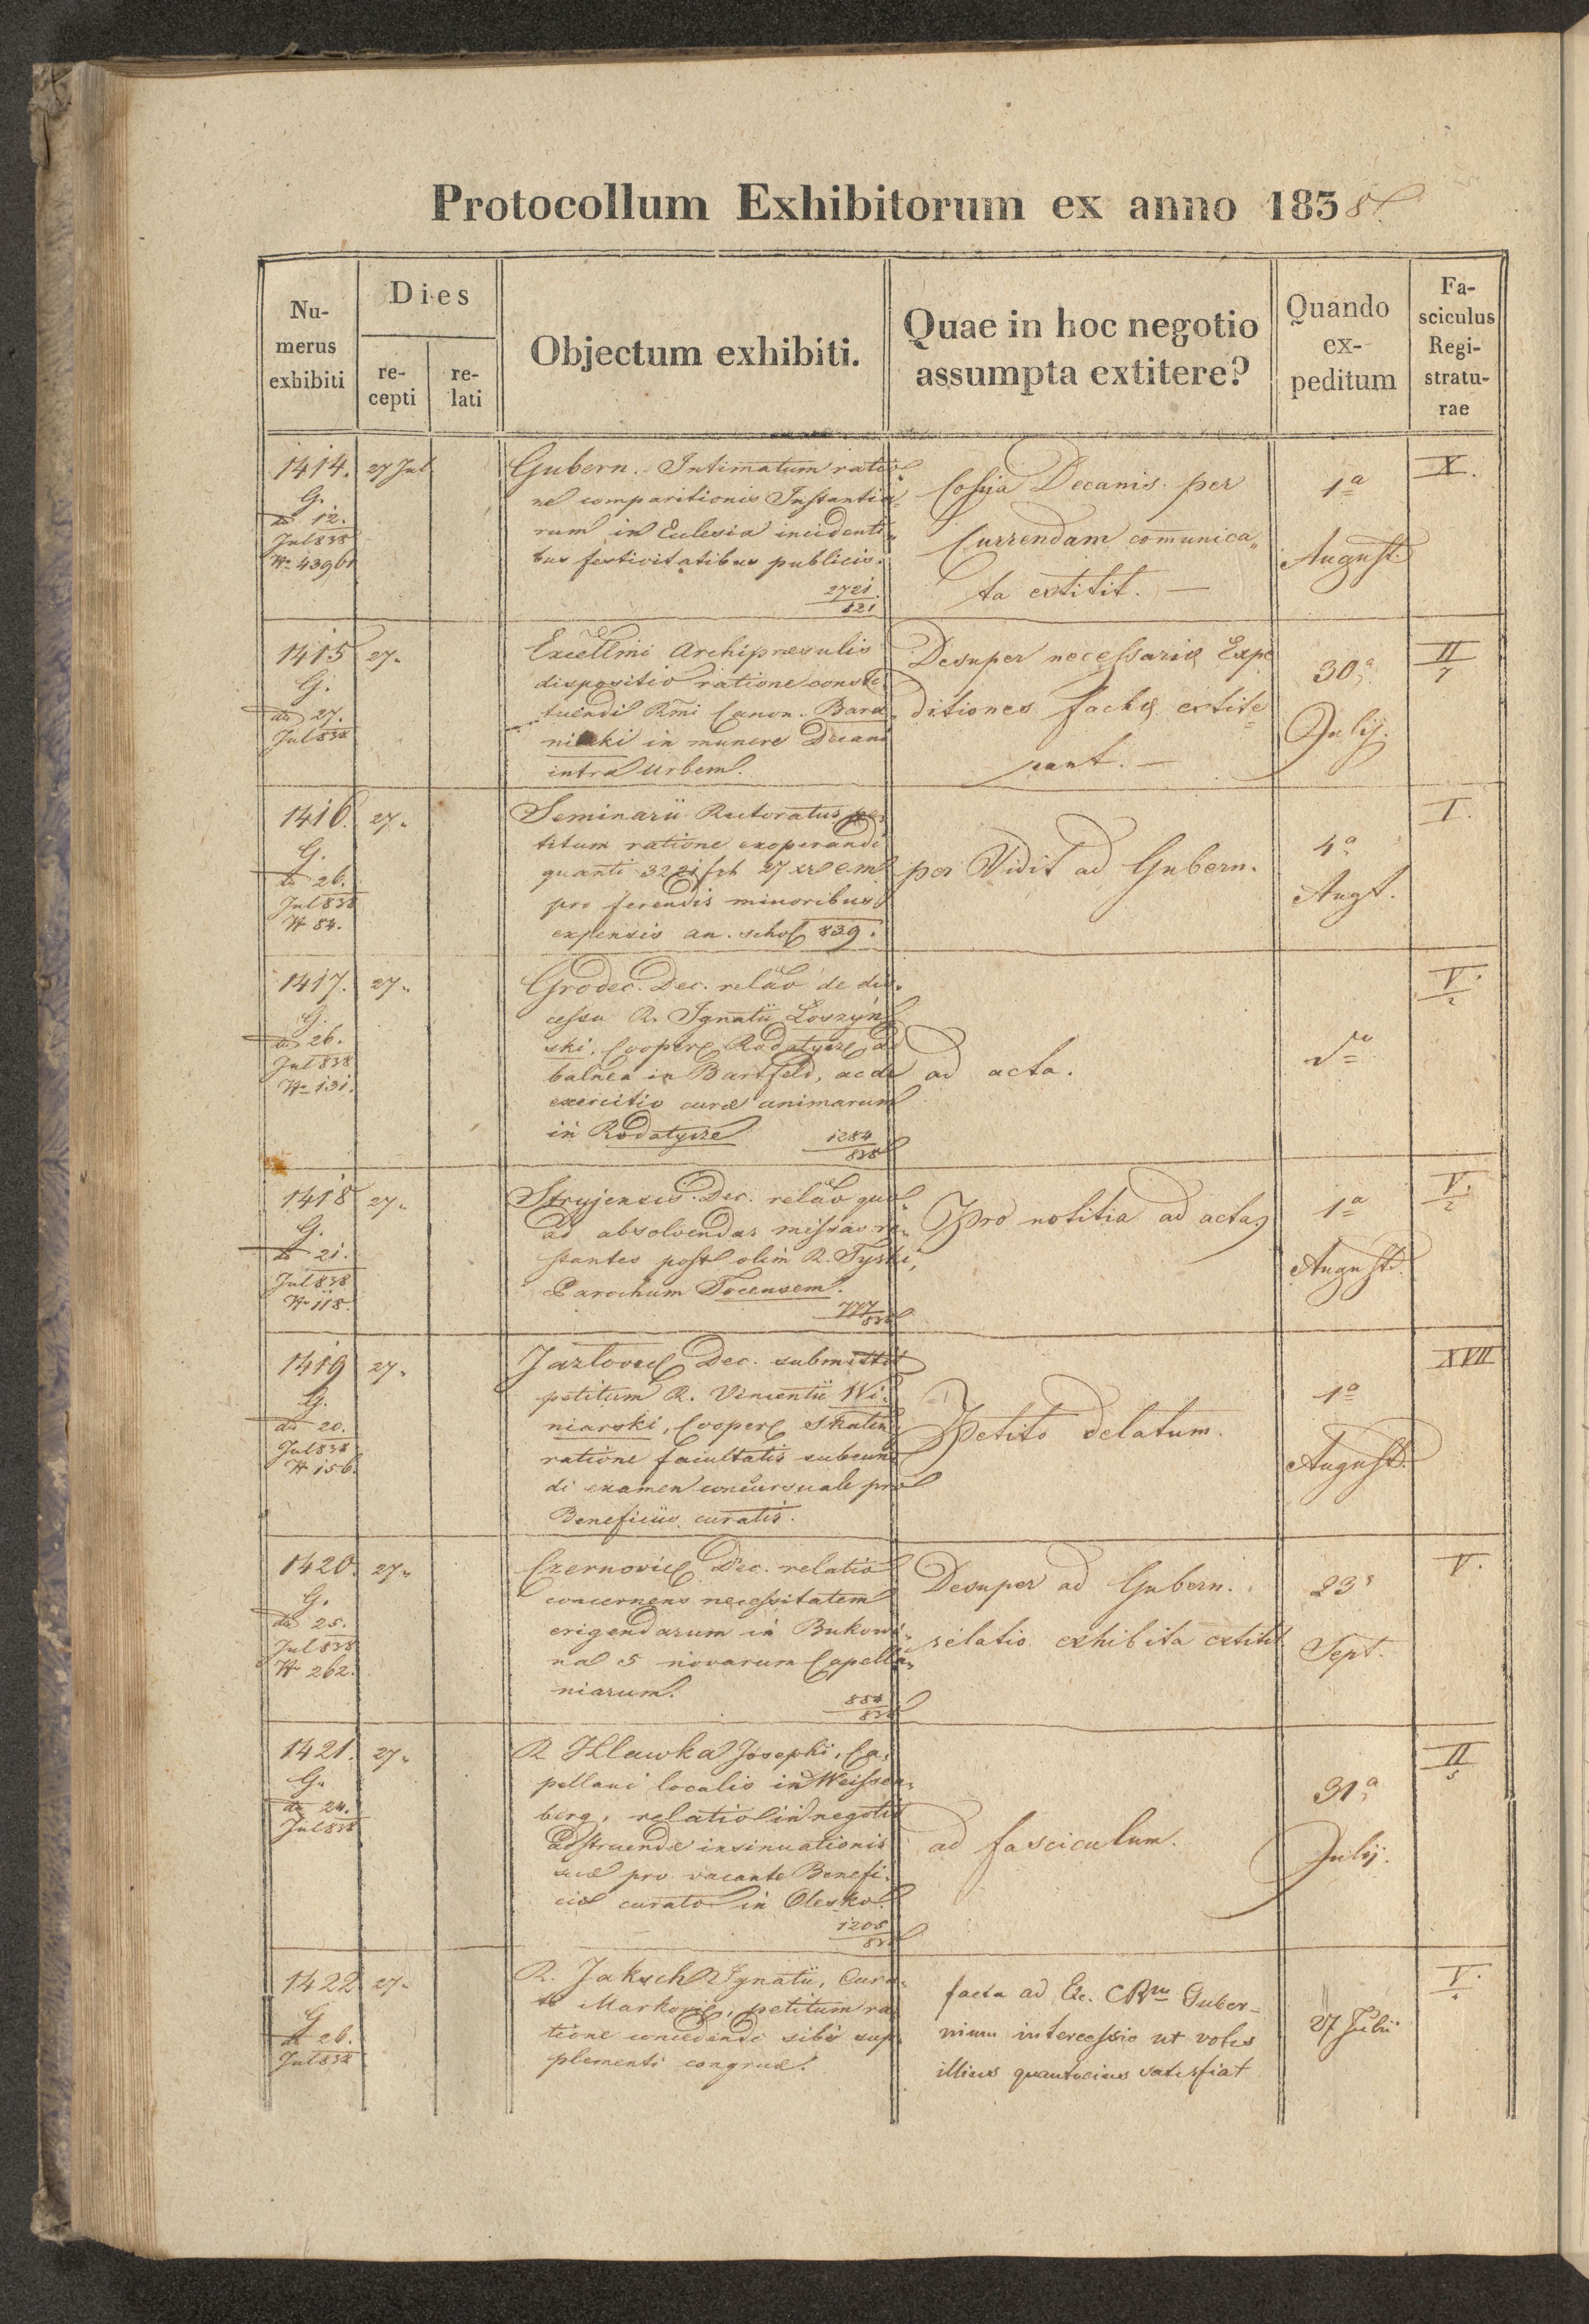 Protocollum Exhibitorum ex anno 1838.
Nu-
merus
exhibiti
Dies
re-
cepti
re-
lati
Objectum exhibiti.
Quae in hoc negotio
assumpta extitere?
Quando
ex-
peditum
Fa-
sciculus
Regi-
stratu-
rae
1414.
G.
do 12.
Jul 838
27 Jul
Gubern. Intimatum ratio
ne comparitionis Instantia
rum in Eclesia incidenti„
bus festivitatibus publicis.
2721.
821
Decanis per
Currendam comunica„
ta extitit. —
1a
August.
X.
1415
G.
do 27.
Jul 838
27.
Excellmi Archipraesulis
dispositio ratione consti„
tuendi Rmi Canon. Bara„
niecki in munere Decani
intra Urbem.
Desuper necessariae Expe
ditiones factae extite=
rant. —
30a
Julij.
II
7
1416.
G.
do 26.
Jul 838
N 84.
27.
Seminarii Rectoratus pe„
titum ratione exoperandi
quanti 32 27 xr c.m
pro ferendis minoribus
expensis an. schol 839.
per Vidit ad Gubern.
4a
Augt.
I.
1417.
G.
do 26.
Jul 838
N 131.
27.
Grodec. Dec. relao de dis„
cessu R. Ignatii Łoszyń„
ski, Cooper Rodatycze ad
balnea in Bartfeld, ac de
exercitio curae animarum
in Rodatycze
1284
838
ad acta.
V.
2
1418
G.
do 21.
Jul 838
N 118.
27.
Stryjensis Dec. relao quo„
ad absolvendas missas re„
stantes post olim R. Tyski,
Parochum
777
838
Pro notitia ad acta
1a
August.
V.
2
1419
G.
do 20.
Jul 838
N 156.
27.
Jazlovec Dec. submittit
petitum R. Vincentii Wi„
niarski, Cooper Skaten
ratione facultatis subeun„
di examen concursuale pro
Beneficiis curatis.
Petito delatum.
1a
August.
XVII
1420.
G.
do 25.
Jul 838
N 262.
27.
Czernovic Dec. relatio
concernens necessitatem
erigendarum in Bukowi„
na 5 novarum Capella„
niarum.
854
838
Desuper ad Gubern.
relatio exhibita extitit
23a
Sept.
V.
1421.
G.
do 24.
Jul 838
27.
R Hlawka Josephi, Ca„
pellani localis in Weissen„
berg, relatio in negotio
adstruendae insinuationis
suae pro vacante Benefi„
cio curato in Olesko.
1205
838
ad fasciculum.
31a
Julij.
II
5
1422
G
do 26.
Jul 838
27.
R. Jaksch Ignatii, Cura„
to Markovic, petitum ra„
tione concedendi sibi sup„
plementi congruae.
facta ad Exc. CRm Guber-
nium intercessio ut votis
illius quantocius satisfiat
27 Julii
V.